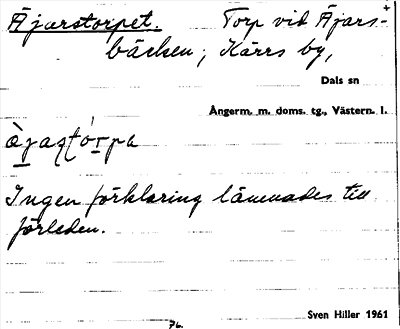 Äjarstorpet. Torp vid Äjars-
bäcken; Kärrs by,
Dals sn
Ångerm. m. doms. tg., Västern. l.
Ingen förklaring lämnades till
förleden.
Sven Hiller 1961
76.